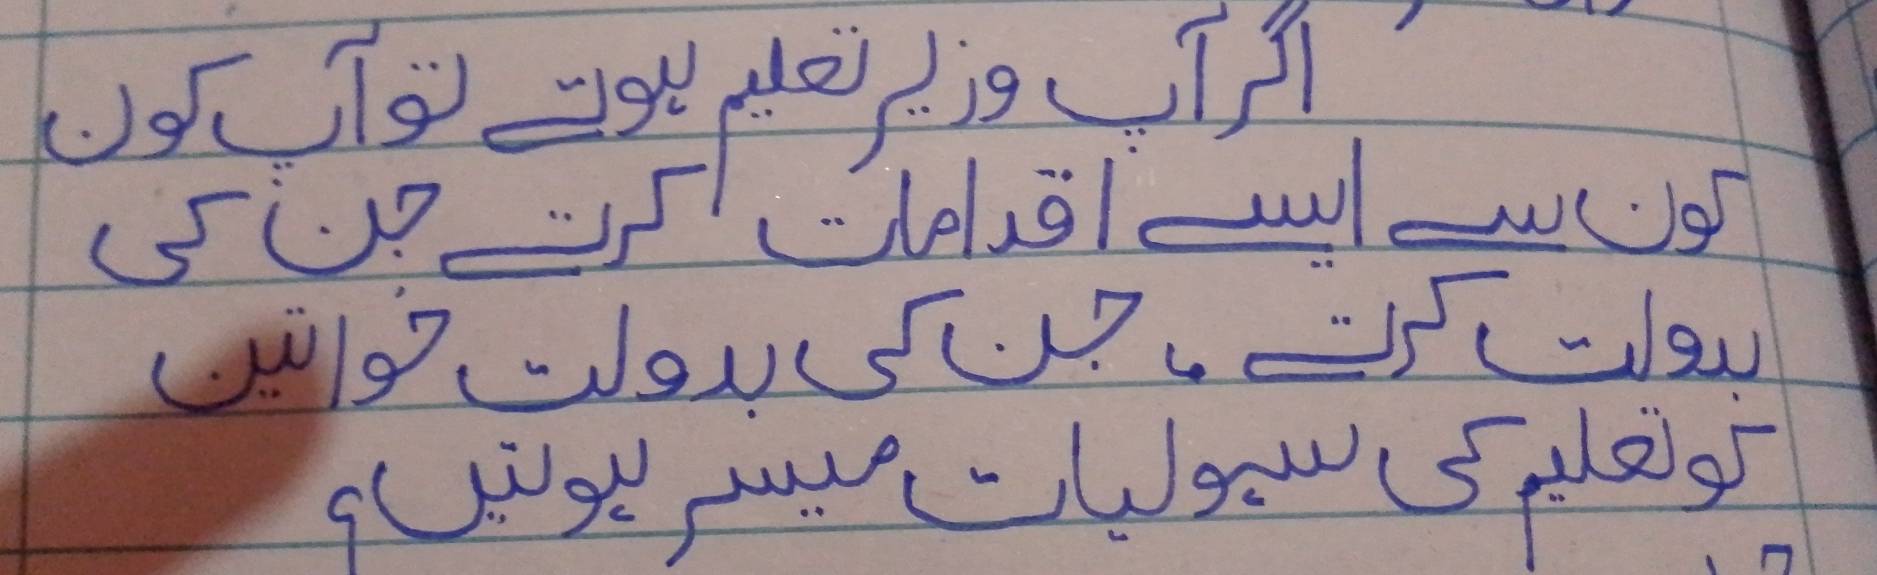 اگر آپ وزیر تعلیم ہوتے تو آپ کون
کون سے ایسے اقدامات کرتے جن کی
بدولت کرتے ، جن کی بدولت خواتین
کو تعلیم کی سہولیات میسر ہوتیں؟